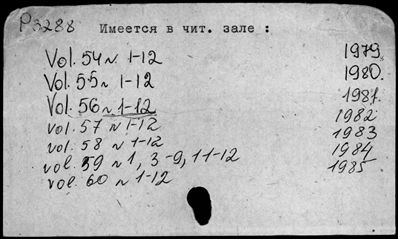 P3288 Имеется в чит. зале :
Vol. 54 n. 1-12 1979.
Vol. 55 n. 1-12 1980.
Vol. 56 n. 1-12 1981.
vol. 57 n 1-12 1982
vol. 58 n 1-12 1983
vol. 59 n 1, 3-9, 11-12 1984
vol. 60 n 1-12 1985